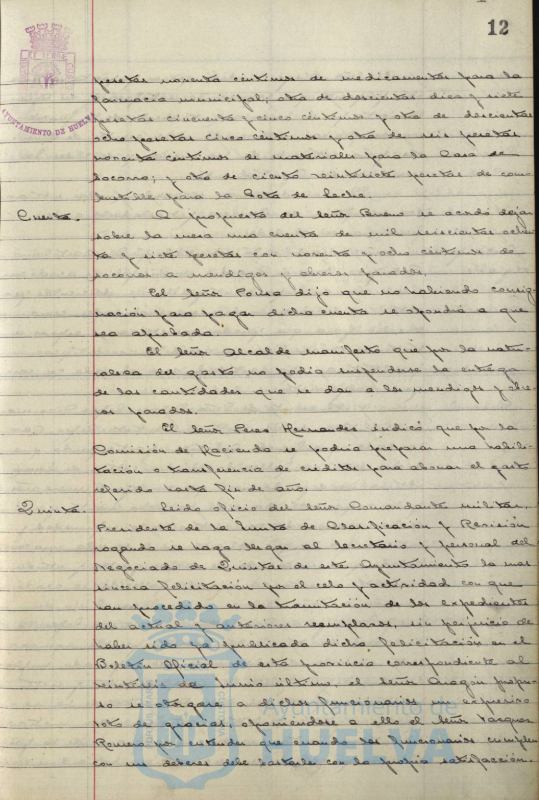 12
AYUNTAMIENTO DE HUELVA
pesetas noventa céntimos de medicamentos para la
farmacia municipal; otra de doscientas diez y siete
pesetas cincuenta y cinco céntimos y otra de doscientas
ocho pesetas cinco céntimos y otra de seis pesetas
noventa céntimos de materiales para la Casa de
Socorro; y otra de ciento veintisiete pesetas de com-
bustible para la Gota de Leche.
Cuenta. A propuesta del Señor Bueno se acordó dejar
sobre la mesa una cuenta de mil seiscientas ochen-
ta y siete pesetas con noventa y ocho céntimos de
socorros a mendigos y obreros parados.
El Señor Ponsa dijo que no habiendo consig-
nación para pagar dicha cuenta se oponía a que
sea aprobada.
El Señor Alcalde manifestó que por la natu-
raleza del gasto no podía suspenderse la entrega
de las cantidades que se dan a los mendigos y obre-
ros parados.
El Señor Perez Hernandez indicó que por la
Comisión de Hacienda se podría preparar una habili-
tación o transferencia de créditos para abonar el gasto
referido hasta fin de año.
Quinta. Leido oficio del Señor Comandante militar,
Presidente de la Junta de Clasificación y Revisión
rogando se haga llegar al Secretario y personal del
Negociado de Quintas de este Ayuntamiento la mas
sincera felicitación por el celo y actividad con que
han procedido en la tramitación de los expedientes
del actual y anteriores reemplazos, sin perjuicio de
haber sido ya publicada dicha felicitación en el
Boletín Oficial de esta provincia correspondiente al
veintiseis de Junio último, el Señor Aragón propu-
so se otorgara a dichos funcionarios un expresivo
voto de gracias; oponiéndose a ello el Señor Vazquez
Romero por entender que cuando los funcionarios cumplen
con sus deberes debe bastarles con la propia satisfacción.
Ayuntamiento de
HUELVA